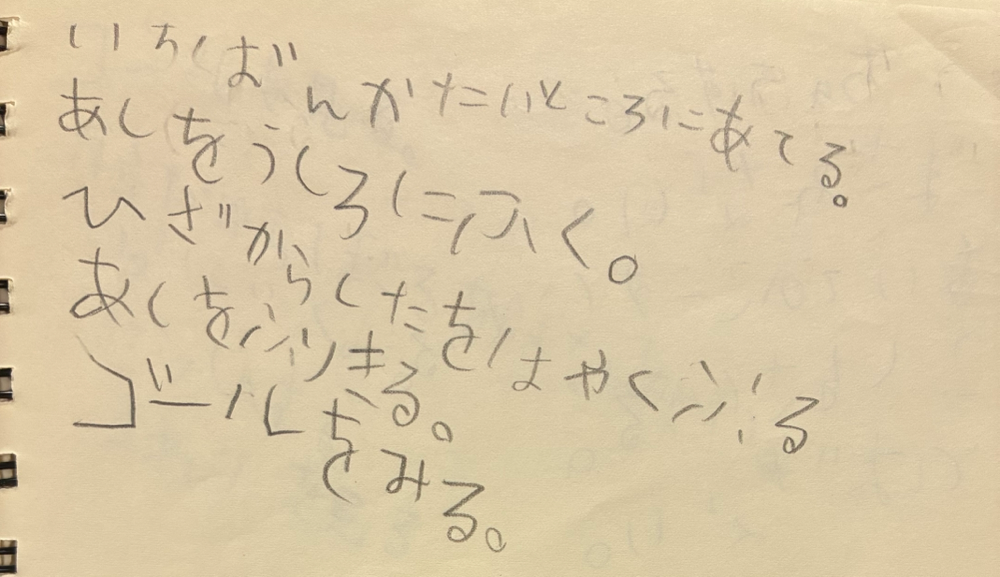 いちばんかたいところにあてる。
あしをうしろにふく。
ひざからしたをはやくふる
あしをふりきる。
ゴールをみる。